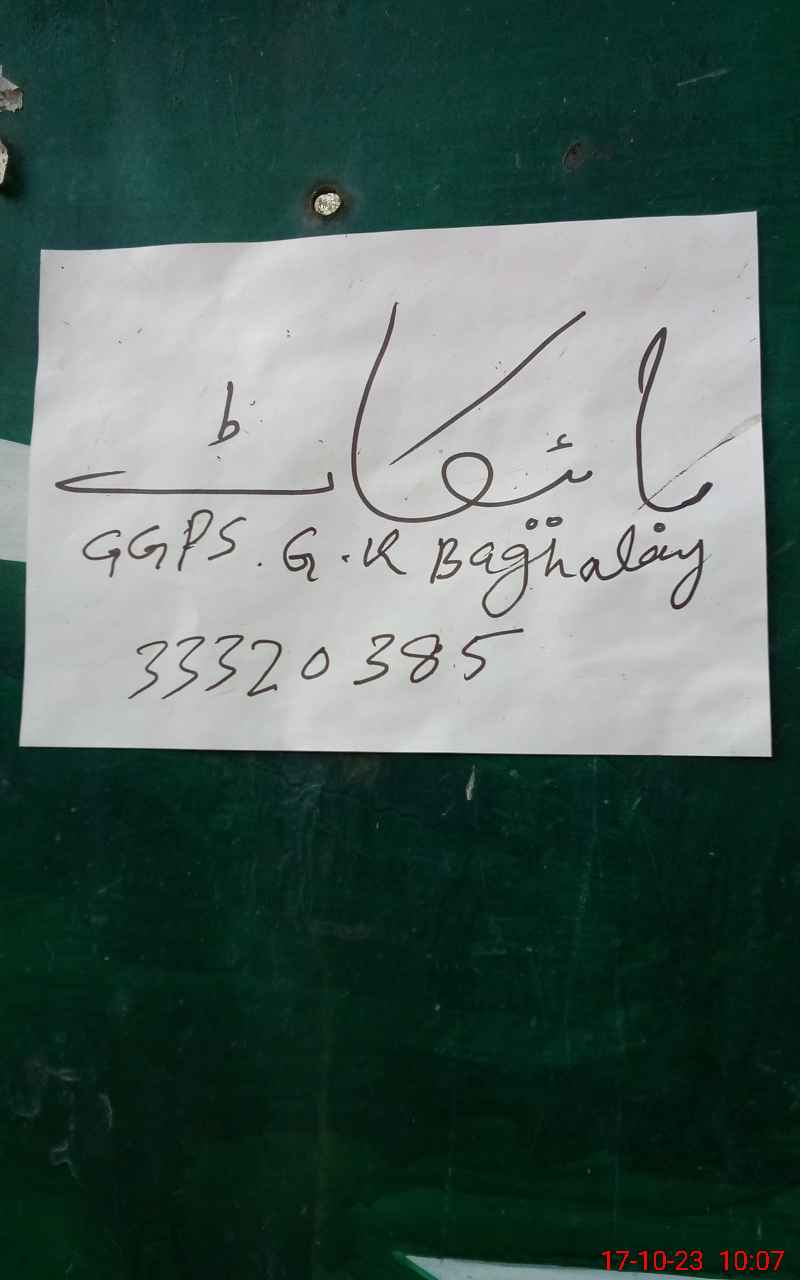 بائیکاٹ
GGPS. G.K Baghalay
33320385
17-10-23 10:07